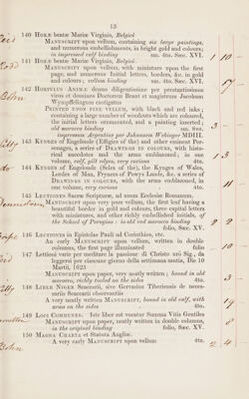 13
140 HORÆ beatæ Mariæ Virginis, Belgicè
MANUSCRIPT upon vellum, containing six large paintings,
and numerous embellishments, in bright gold and colours;
in impressed calf binding sm. 4to. Sæc. XVI.
141 HORÆ beatæ Mariæ Virginis, Belgicè
MANUSCRIPT upon vellum, with miniature upon the first
page, and numerous Initial letters, borders, &c. in gold
and colours; vellum binding sm. 4to. Sæc. XVI.
142 HORTULUS ANIMÆ denuo diligentissime per prestantissimos
viros et dominos Doctorem Brant et magistrum Jacobum
Wympffelingum castigatus
PRINTED UPON FINE VELLUM, with black and red inks;
containing a large number of woodcuts which are coloured,
the initial letters ornamented, and a painting inserted;
old morocco binding
impressum Argentine per Johannem Wehinger MDIII.
143 KYNGES of Engelonde (Effigies of the) and other eminent Per-
sonages, a series of DRAWINGS IN COLOURS, with histo-
rical anecdotes and the arms emblazoned; in one
volume, calf, gilt edges, very curious 4to.
144 KYNGES of Engelonde (Seles of the), the Kynges of Walys,
Lordes of Man, Prynces of Powys Londe, &c. a series of
DRAWINGS IN COLOURS, with the arms emblazoned, in
one volume, very curious 4to.
145 LECTIONES Sacræ Scripturæ, ad usum Ecclesiæ Romanæ,
MANUSCRIPT upon very poor vellum, the first leaf having a
beautiful border in gold and colours, three capital letters
with miniatures, and other richly embellished initials, of
the School of Perugino: in old red morocco binding
folio, Sæc. XV.
146 LECTIONES in Epistolas Pauli ad Corinthios, etc.
An early MANUSCRIPT upon vellum, written in double
columns, the first page illuminated folio
147 Lettioni varie per meditare la passione di Christo nro Sig., da
leggersi per ciascune giorni della settimana santa, Die 10
Martii, 1623
MANUSCRIPT upon paper, very neatly written; bound in old
morocco, richly tooled on the sides 4to.
148 LIBER NIGER Scaccarii, sive Gervasius Tilberiensis de neces-
sariis Scaccarii observantiis
A very neatly written MANUSCRIPT, bound in old calf, with
arms on the sides 4to.
149 LOCI COMMUNES. Iste liber est vocatur Summa Vitis Gentilis
MANUSCRIPT upon paper, neatly written in double columns,
in the original binding folio, Sæc. XV.
150 MAGNA CHARTA et Statuta Angliæ.
A very early MANUSCRIPT upon vellum 4to.